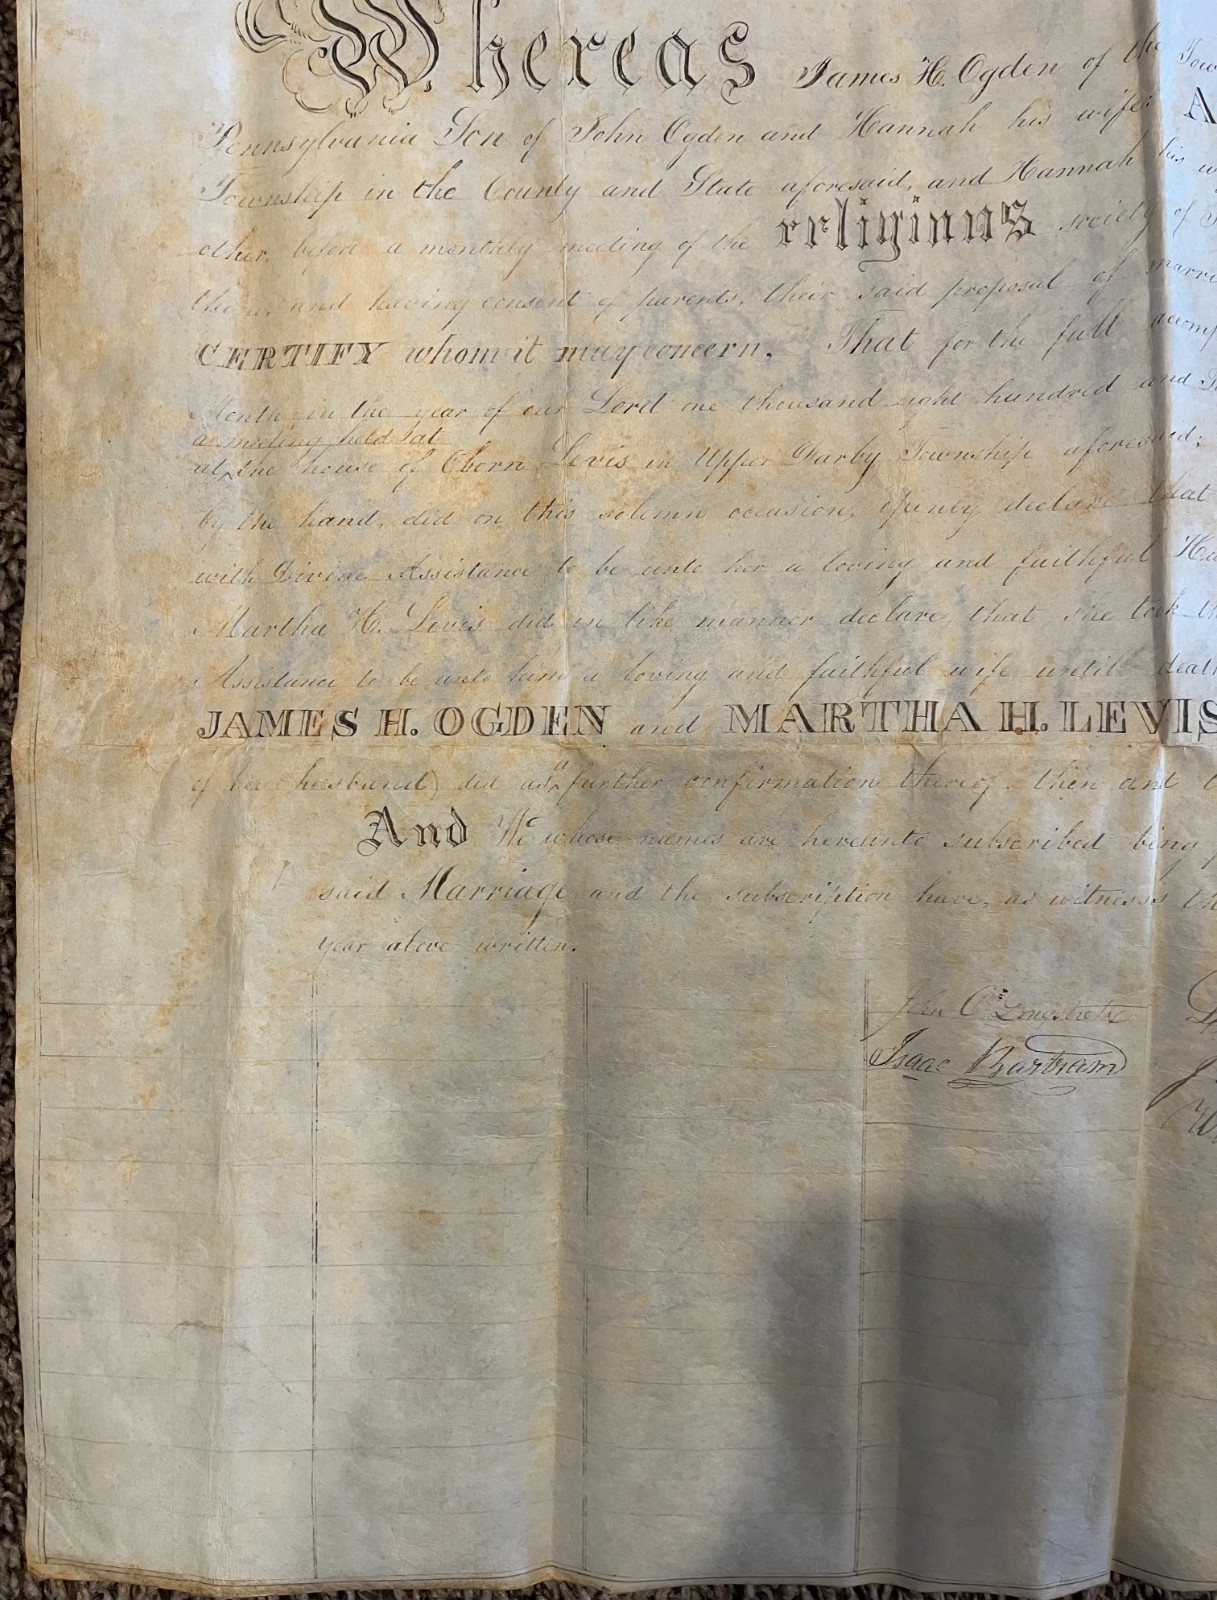 Whereas James H. Ogden of the Tow
Pennsylvania Son of John Ogden and Hannah his wife; A
Township in the County and State aforesaid, and Hannah his w
other, before a monthly meeting of the religious society of
them, and having consent of parents, their said proposal of marri
CERTIFY whom it may concern. That for the full accomp
Month, in the year of our Lord one thousand eight hundred and
a meeting held at
at ‸ the house of Oborn Levis in Upper Darby Township aforesaid;
by the hand, did on this solemn occasion, openly declare that
with Divine Assistance to be unto her a loving and faithful Hu
Martha H. Levis did in like manner declare, that she took
Assistance to be unto him a loving and faithful wife until death
JAMES H. OGDEN and MARTHA H. LEVIS
a
of her husband) did as ‸ further confirmation thereof, then and
And We whose names are hereunto subscribed being p
said Marriage and the subscription have, as witnesses th
year above written.
Isaac Bartram